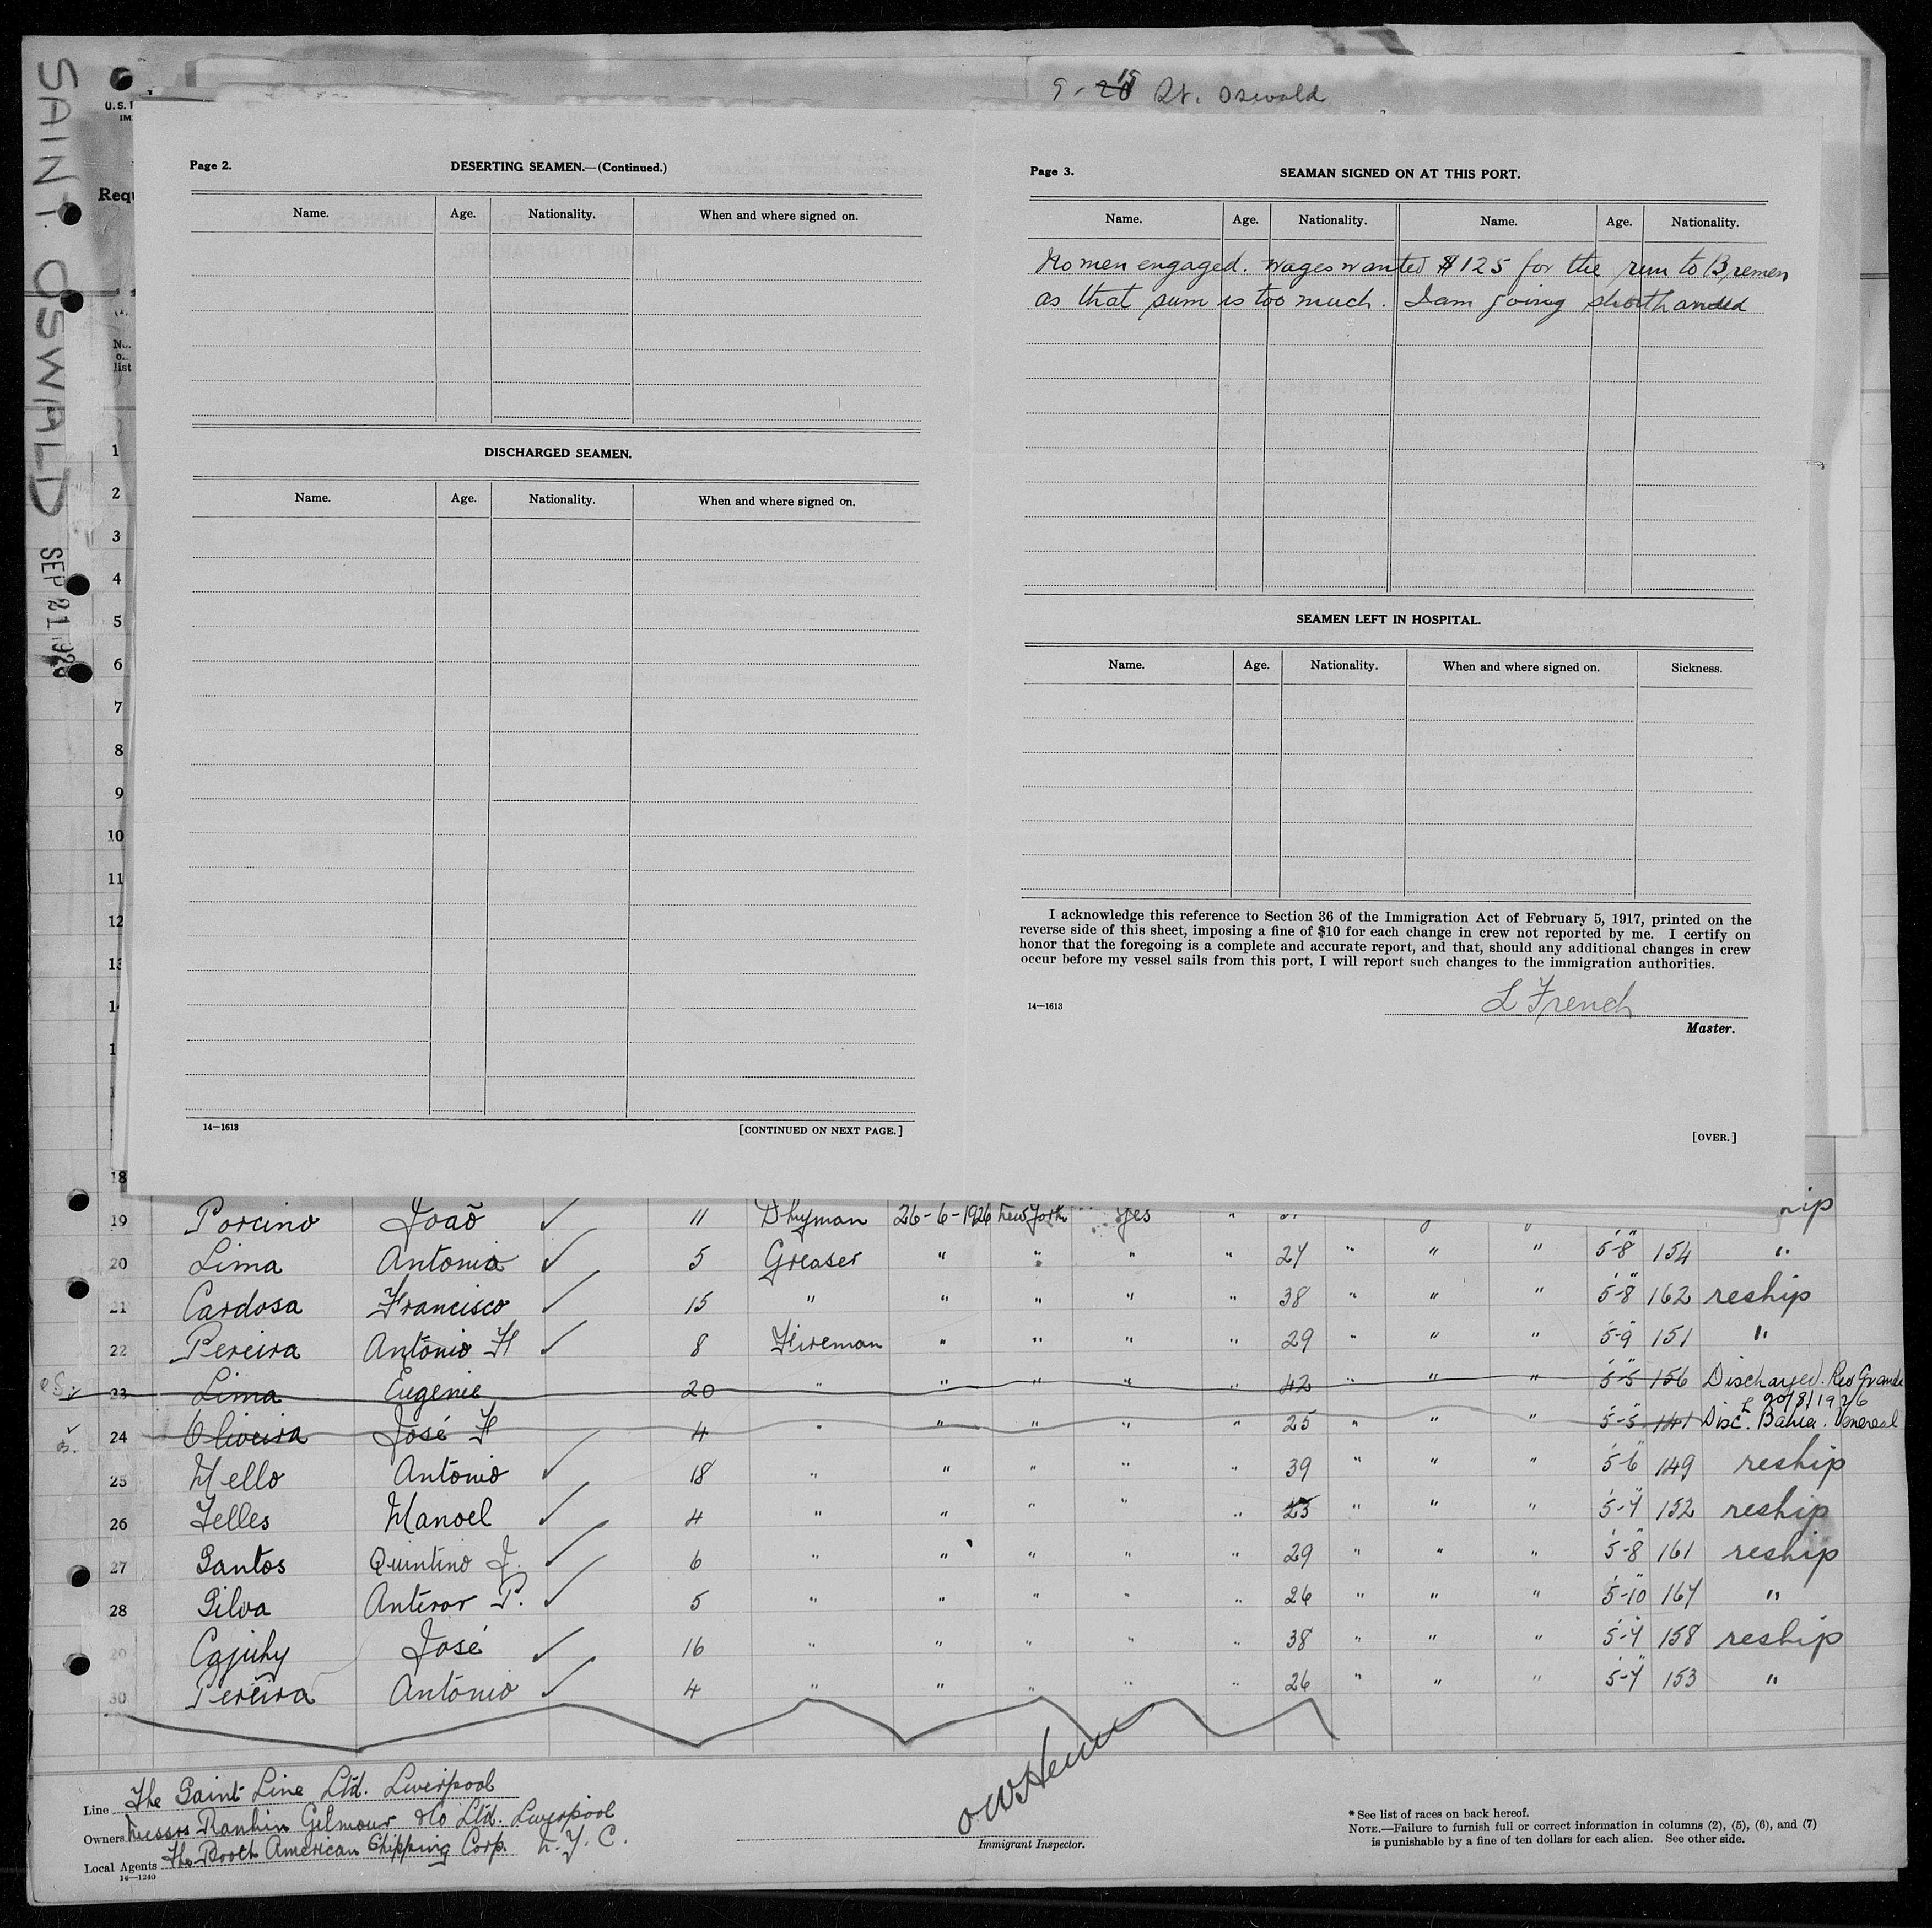 SAINT OSWALD SEP 21 192
U.S.
IM
Requ
No.
list
9-15 St. Oswald
Page 2. DESERTING SEAMEN.—(Continued.)
Name. Age. Nationality. When and where signed on.
DISCHARGED SEAMEN.
Name. Age. Nationality. When and where signed on.
14—1613 [CONTINUED ON NEXT PAGE.]
Page 3. SEAMAN SIGNED ON AT THIS PORT.
Name. Age. Nationality. Name. Age. Nationality.
No men engaged. Wages wanted $125 for the run to Bremen
as that sum is too much. I am going shorthanded
SEAMEN LEFT IN HOSPITAL.
Name. Age. Nationality. When and where signed on. Sickness.
I acknowledge this reference to Section 36 of the Immigration Act of February 5, 1917, printed on the
reverse side of this sheet, imposing a fine of $10 for each change in crew not reported by me. I certify on
honor that the foregoing is a complete and accurate report, and that, should any additional changes in crew
occur before my vessel sails from this port, I will report such changes to the immigration authorities.
14—1613 L French
Master.
[OVER.]
1
2
3
4
5
6
7
8
9
10
11
12
13
1
1
18
19 Porcino Joaõ ✓ 11 Dkyman 26-6-1926 New York yes " ship
20 Lima Antonio ✓ 5 Greaser " " " " 27 " " " 5'-8" 154 "
21 Cardosa Francisco ✓ 15 " " " " " 38 " " " 5'-8" 162 reship
22 Pereira Antonio H ✓ 8 Fireman " " " " 29 " " " 5'-9" 151 "
23 Lima Eugenie 20 " " " " " 42 " " " 5'-5" 156 Discharged. Rio Grande
20/8/1926
24 Oliveira José H 4 " " " " " 25 " " " 5'-5" 141 Disc. Bahia. Venereal
25 Mello Antonio ✓ 18 " " " " " 39 " " " 5'-6" 149 reship
26 Telles Manoel ✓ 4 " " " " " 23 " " " 5'-7" 152 reship
27 Santos Quintino J. ✓ 6 " " " " " 29 " " " 5'-8" 161 reship
28 Silva Anteror P. ✓ 5 " " " " " 26 " " " 5'-10" 167 "
29 Cajuhy José ✓ 16 " " " " " 38 " " " 5'-7" 158 reship
30 Pereira Antonio ✓ 4 " " " " " 26 " " " 5'-7" 153 "
Line The Saint Line Ltd. Liverpool
Owners Messrs Rankin Gilmour & Co Ltd. Liverpool
Local Agents The Booth American Shipping Corp. N.Y.C.
14—1240
Immigrant Inspector.
* See list of races on back hereof.
NOTE.—Failure to furnish full or correct information in columns (2), (5), (6), and (7)
is punishable by a fine of ten dollars for each alien. See other side.